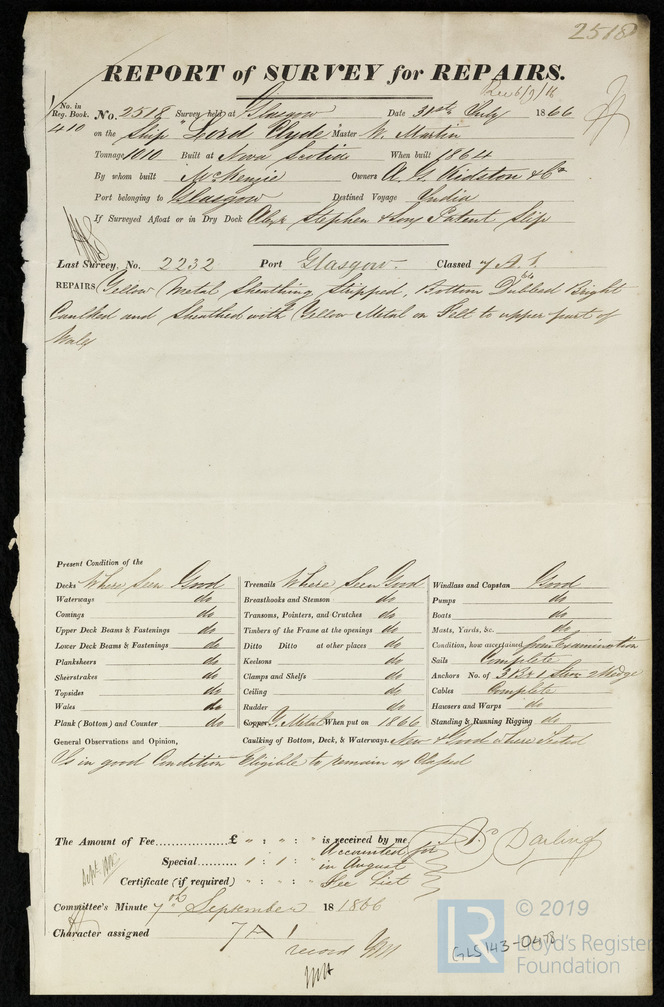 2518
REPORT of SURVEY for REPAIRS.
Rec 6/9/66
No. in Reg. Book. No. 2518 Survey held at Glasgow Date 31st July 1866
410 on the Ship "Lord Clyde" Master W. Martin
Tonnage 1010 Built at Nova Scotia When built 1864
By whom built McKenzie Owners A. G. Kidston & Co.
Port belonging to Glasgow Destined Voyage India
If Surveyed Afloat or in Dry Dock Alexr Stephen & Sons Patent Slip
Last Survey, No. 2232 Port Glasgow. Classed 7 A 1
64
REPAIRS, Yellow Metal Sheathing Stripped, Bottom Dubbed Bright
Caulked and Sheathed with Yellow Metal on Felt to upper part of
Wales
Present Condition of the
Decks Where Seen Good Treenails Where Seen Good Windlass and Capstan Good
Waterways do Breasthooks and Stemson do Pumps do
Comings do Transoms, Pointers, and Crutches do Boats do
Upper Deck Beams & Fastenings do Timbers of the Frame at the openings do Masts, Yards, &c. do
Lower Deck Beams & Fastenings do Ditto Ditto at other places do Condition, how ascertained from Examination
Planksheers do Keelsons do Sails Complete
Sheerstrakes do Clamps and Shelfs do Anchors No. of 3 Br 1 Strm 2 Kedge
Topsides do Ceiling do Cables Complete
Wales do Rudder do Hawsers and Warps do
Plank (Bottom) and Counter do Copper Y. Metal When put on 1866 Standing & Running Rigging do
General Observations and Opinion, Caulking of Bottom, Deck, & Waterways. New & Good where Tested
Is in good Condition Eligible to remain as Classed
The Amount of Fee............... £ " : " : " is received by me,
Accounted for
Special.......... 1 : 1 : " in August
Certificate (if required) " : " : " See List
Darling
Sept
Committee's Minute 7th September 18 1866
Character assigned 7 A 1
record
GLS143-0478
LR
© 2019
Lloyd's Register
Foundation